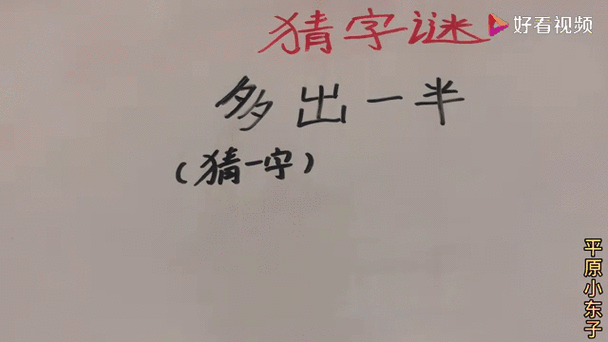 猜字谜
好看视频
多出一半
（猜一字）
平原小东子